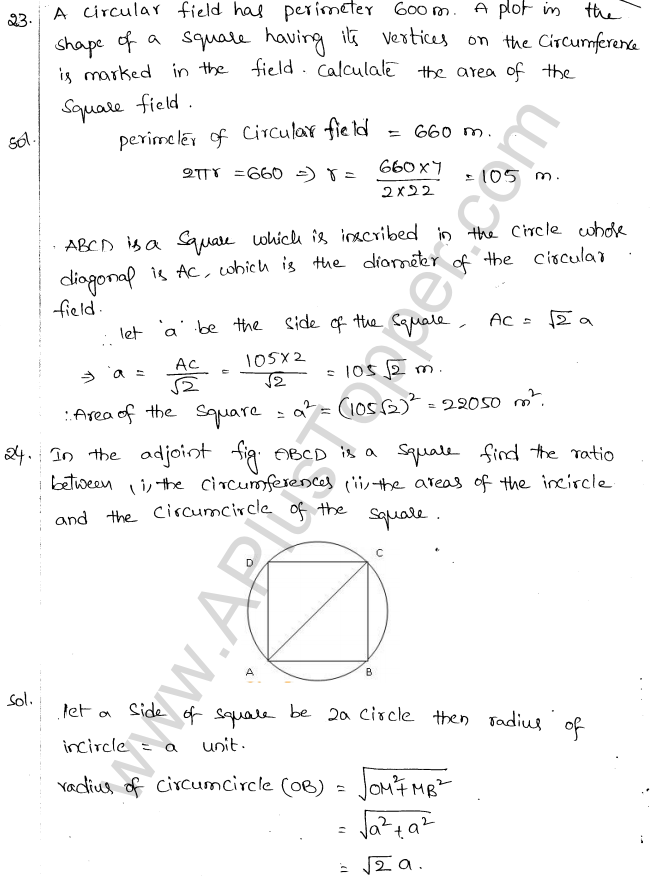 23. A circular field has perimeter 600 m. A plot in the
shape of a square having its vertices on the circumference
is marked in the field. Calculate the area of the
square field.
sol. perimeter of circular field = 660 m.
2πr = 660 ⇒ r = (660×7)/(2×22) = 105 m.
ABCD is a square which is inscribed in the circle whose
diagonal is AC, which is the diameter of the circular
field.
∴ let 'a' be the side of the square, AC = √2 a
⇒ a = AC/√2 = (105×2)/√2 = 105√2 m.
∴ Area of the square = a² = (105√2)² = 22050 m².
24. In the adjoint fig. ABCD is a square find the ratio
between (i) the circumferences (ii) the areas of the incircle
and the circumcircle of the square.
D C
A B
sol. let a side of square be 2a circle then radius of
incircle = a unit.
radius of circumcircle (OB) = √(OM²+MB²)
= √(a²+a²)
= √2 a.
www.APlusTopper.com